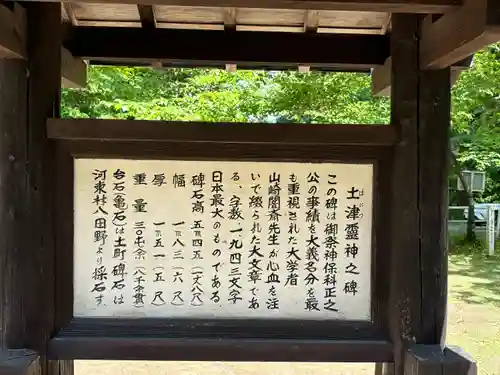 土津靈神之碑
はにつ
この碑は御祭神保科正之
公の事績を大義名分を最
も重視された大学者
山崎闇斎先生が心血を注
いで綴られた大文章であ
る。字数一九四三文字
日本最大のものである。
碑石高 五米四五(一八尺)
幅 一米八三(六尺)
厚 一米五一(五尺)
重量 三〇屯余(八千余貫)
台石(亀石)は土町碑石は
河東村八田野より採石す。